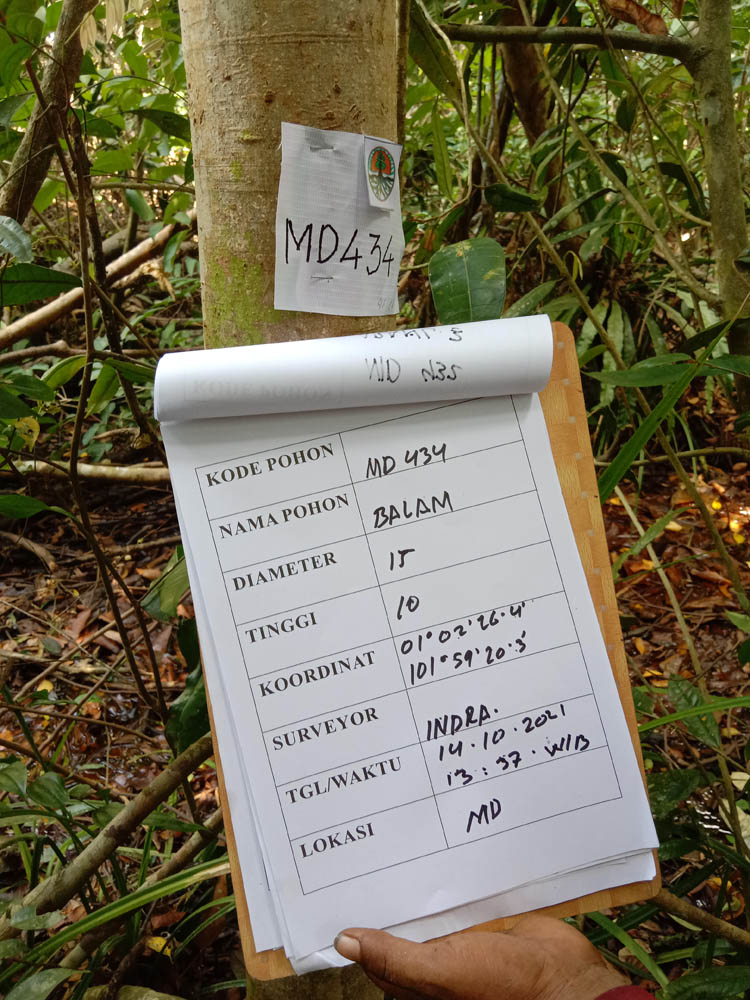 MD434
KODE POHON
MD 434
NAMA POHON
BALAM
DIAMETER
15
TINGGI
10
KOORDINAT
01° 02' 26.4'
101° 59' 20.5'
SURVEYOR
INDRA.
TGL/WAKTU
14.10.2021
13:37. WIB
LOKASI
MD